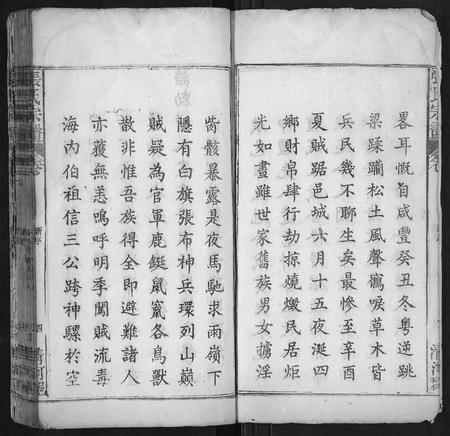 畧耳慨自咸豐癸丑冬粵逆跳
梁蹂躪松土風聲鶴唳草木皆
兵民幾不聊生矣最慘至辛酉
夏賊踞邑城六月十五夜涎四
鄉財帛肆行劫掠燒燬民居炬
光如晝雖世家舊族男女擄淫
胔骸暴露是夜馬馳求雨嶺下
隱有白旗張布神兵環列山巔
賊疑為官軍鹿鋌鼠竄各鳥獸
散非惟吾族得全即避難諸人
亦獲無恙嗚呼明季闖賊流毒
海內伯祖信三公跨神騾於空
張氏宗譜
卷
四
清河邑